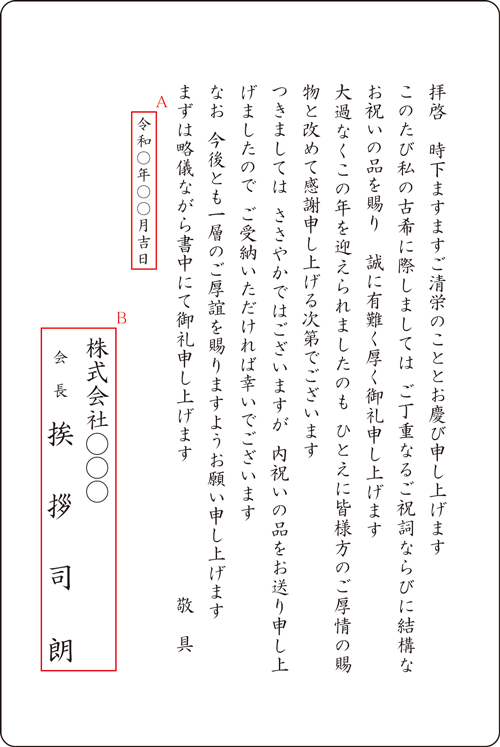 拝啓　時下ますますご清栄のこととお慶び申し上げます
このたび私の古希に際しましては　ご丁重なるご祝詞ならびに結構な
お祝いの品を賜り　誠に有難く厚く御礼申し上げます
大過なくこの年を迎えられましたのも　ひとえに皆様方のご厚情の賜
物と改めて感謝申し上げる次第でございます
つきましては　ささやかではございますが　内祝いの品をお送り申し上
げましたので　ご受納いただければ幸いでございます
なお　今後とも一層のご厚誼を賜りますようお願い申し上げます
まずは略儀ながら書中にて御礼申し上げます
敬具
A
令和〇年〇〇月吉日
B
株式会社〇〇〇
会長　挨拶司朗